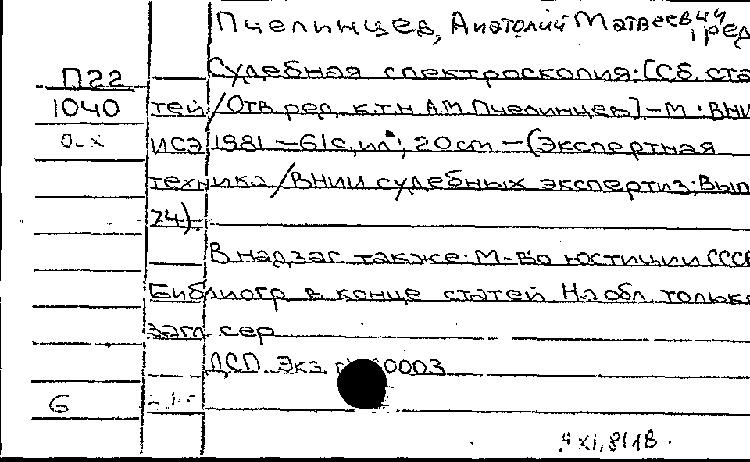 Пчелинцев, Анатолий Матвеевич
ред
Судебная спектроскопия: [Сб. ста
П22
1040
тей / Отв. ред. к.т.н. А.М. Пчелинцев] - М.: ВНИ
0-х
ИСЭ 1981 - 61с, ил; 20см - (Экспертная
техника / ВНИИ судебных экспертиз; Вып
74).
В надзаг также: М-во юстиции СССР
Библиогр в конце статей На обл. только
загл сер
ДСП Экз. 00003
6
XI.81